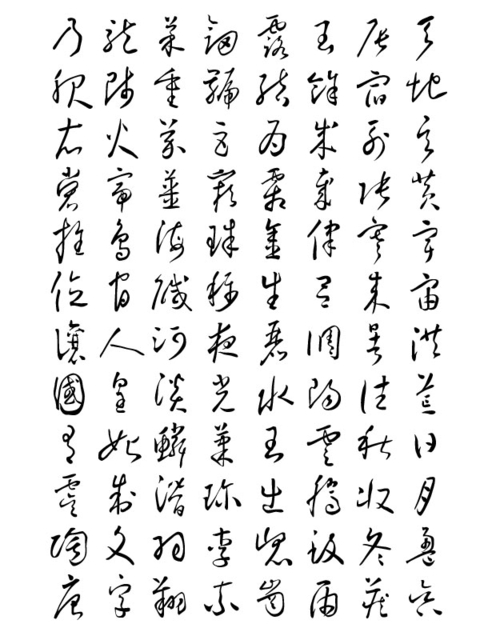 天地玄黃宇宙洪荒日月盈昃
辰宿列張寒來暑往秋收冬藏
閏餘成歲律呂調陽雲騰致雨
露結為霜金生麗水玉出崑岡
劍號巨闕珠稱夜光菓珍李柰
菜重芥薑海鹹河淡鱗潛羽翔
龍師火帝鳥官人皇始制文字
乃服衣裳推位讓國有虞陶唐